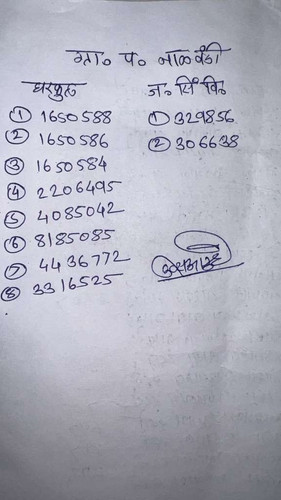 ग्रा० प० नाळवंडी
घरकुल
① 1650588
② 1650586
③ 1650584
④ 2206495
⑤ 4085042
⑥ 8185085
⑦ 4436772
⑧ 3316525
ज० सिं० वि०
① 329856
② 306638